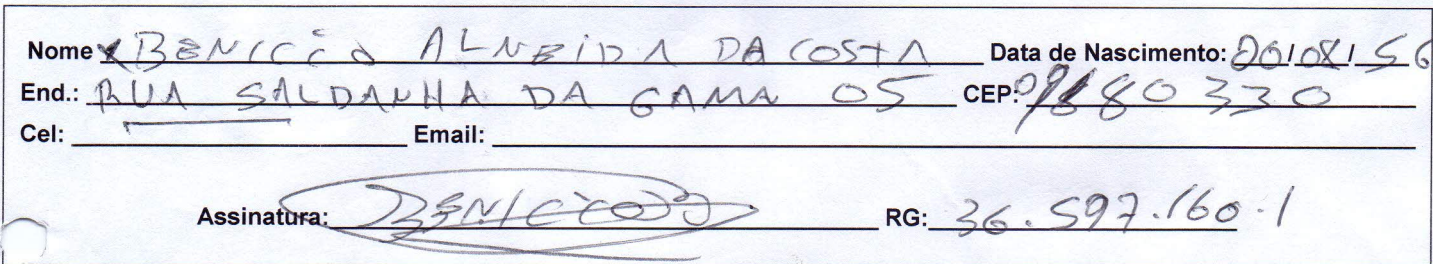 Nome x BENICIO ALNEIDA DA COSTA Data de Nascimento: 20/08/56
End.: RUA SALDANHA DA GAMA 05 CEP: 09880330
Cel: Email:
Assinatura: BENICIO RG: 36.597.160.1